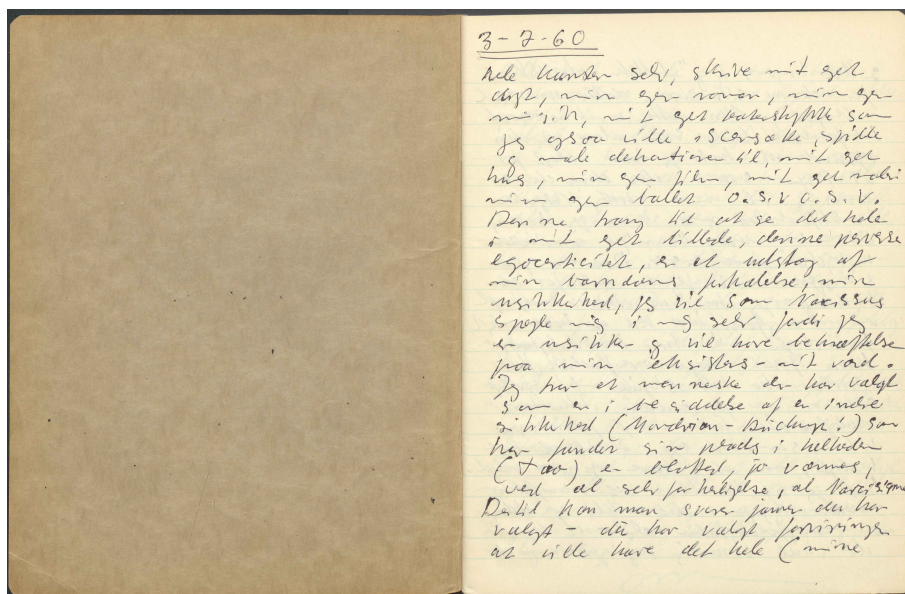 3-7-60
hele kunsten selv, skrive mit eget
digt, min egen roman, min egen
musik, mit eget teaterstykke som
jeg ogsaa ville iscenesætte, spille
og male dekorationer til, mit eget
hus, min egen film, mit eget maleri
min egen ballet o.s.v o.s.v.
Denne trang til at se det hele
i mit eget billede, denne perverse
egocentricitet, er et udslag af
min barndoms forkælelse, min
usikkerhed, jeg vil som Narcissus
spejle mig i mig selv fordi jeg
er usikker og vil have bekræftelse
paa min eksistens - mit værd.
Jeg tror et menneske der har valgt
som er i besiddelse af en indre
sikkerhed (Mondrian - !) som
har fundet sin plads i helheden
(Tao) er blottet, jo væmmes,
ved al selvforherligelse, al Narcissisme
Dertil kan man svare jamen du har
valgt - du har valgt forvirringen
at ville have det hele (mine